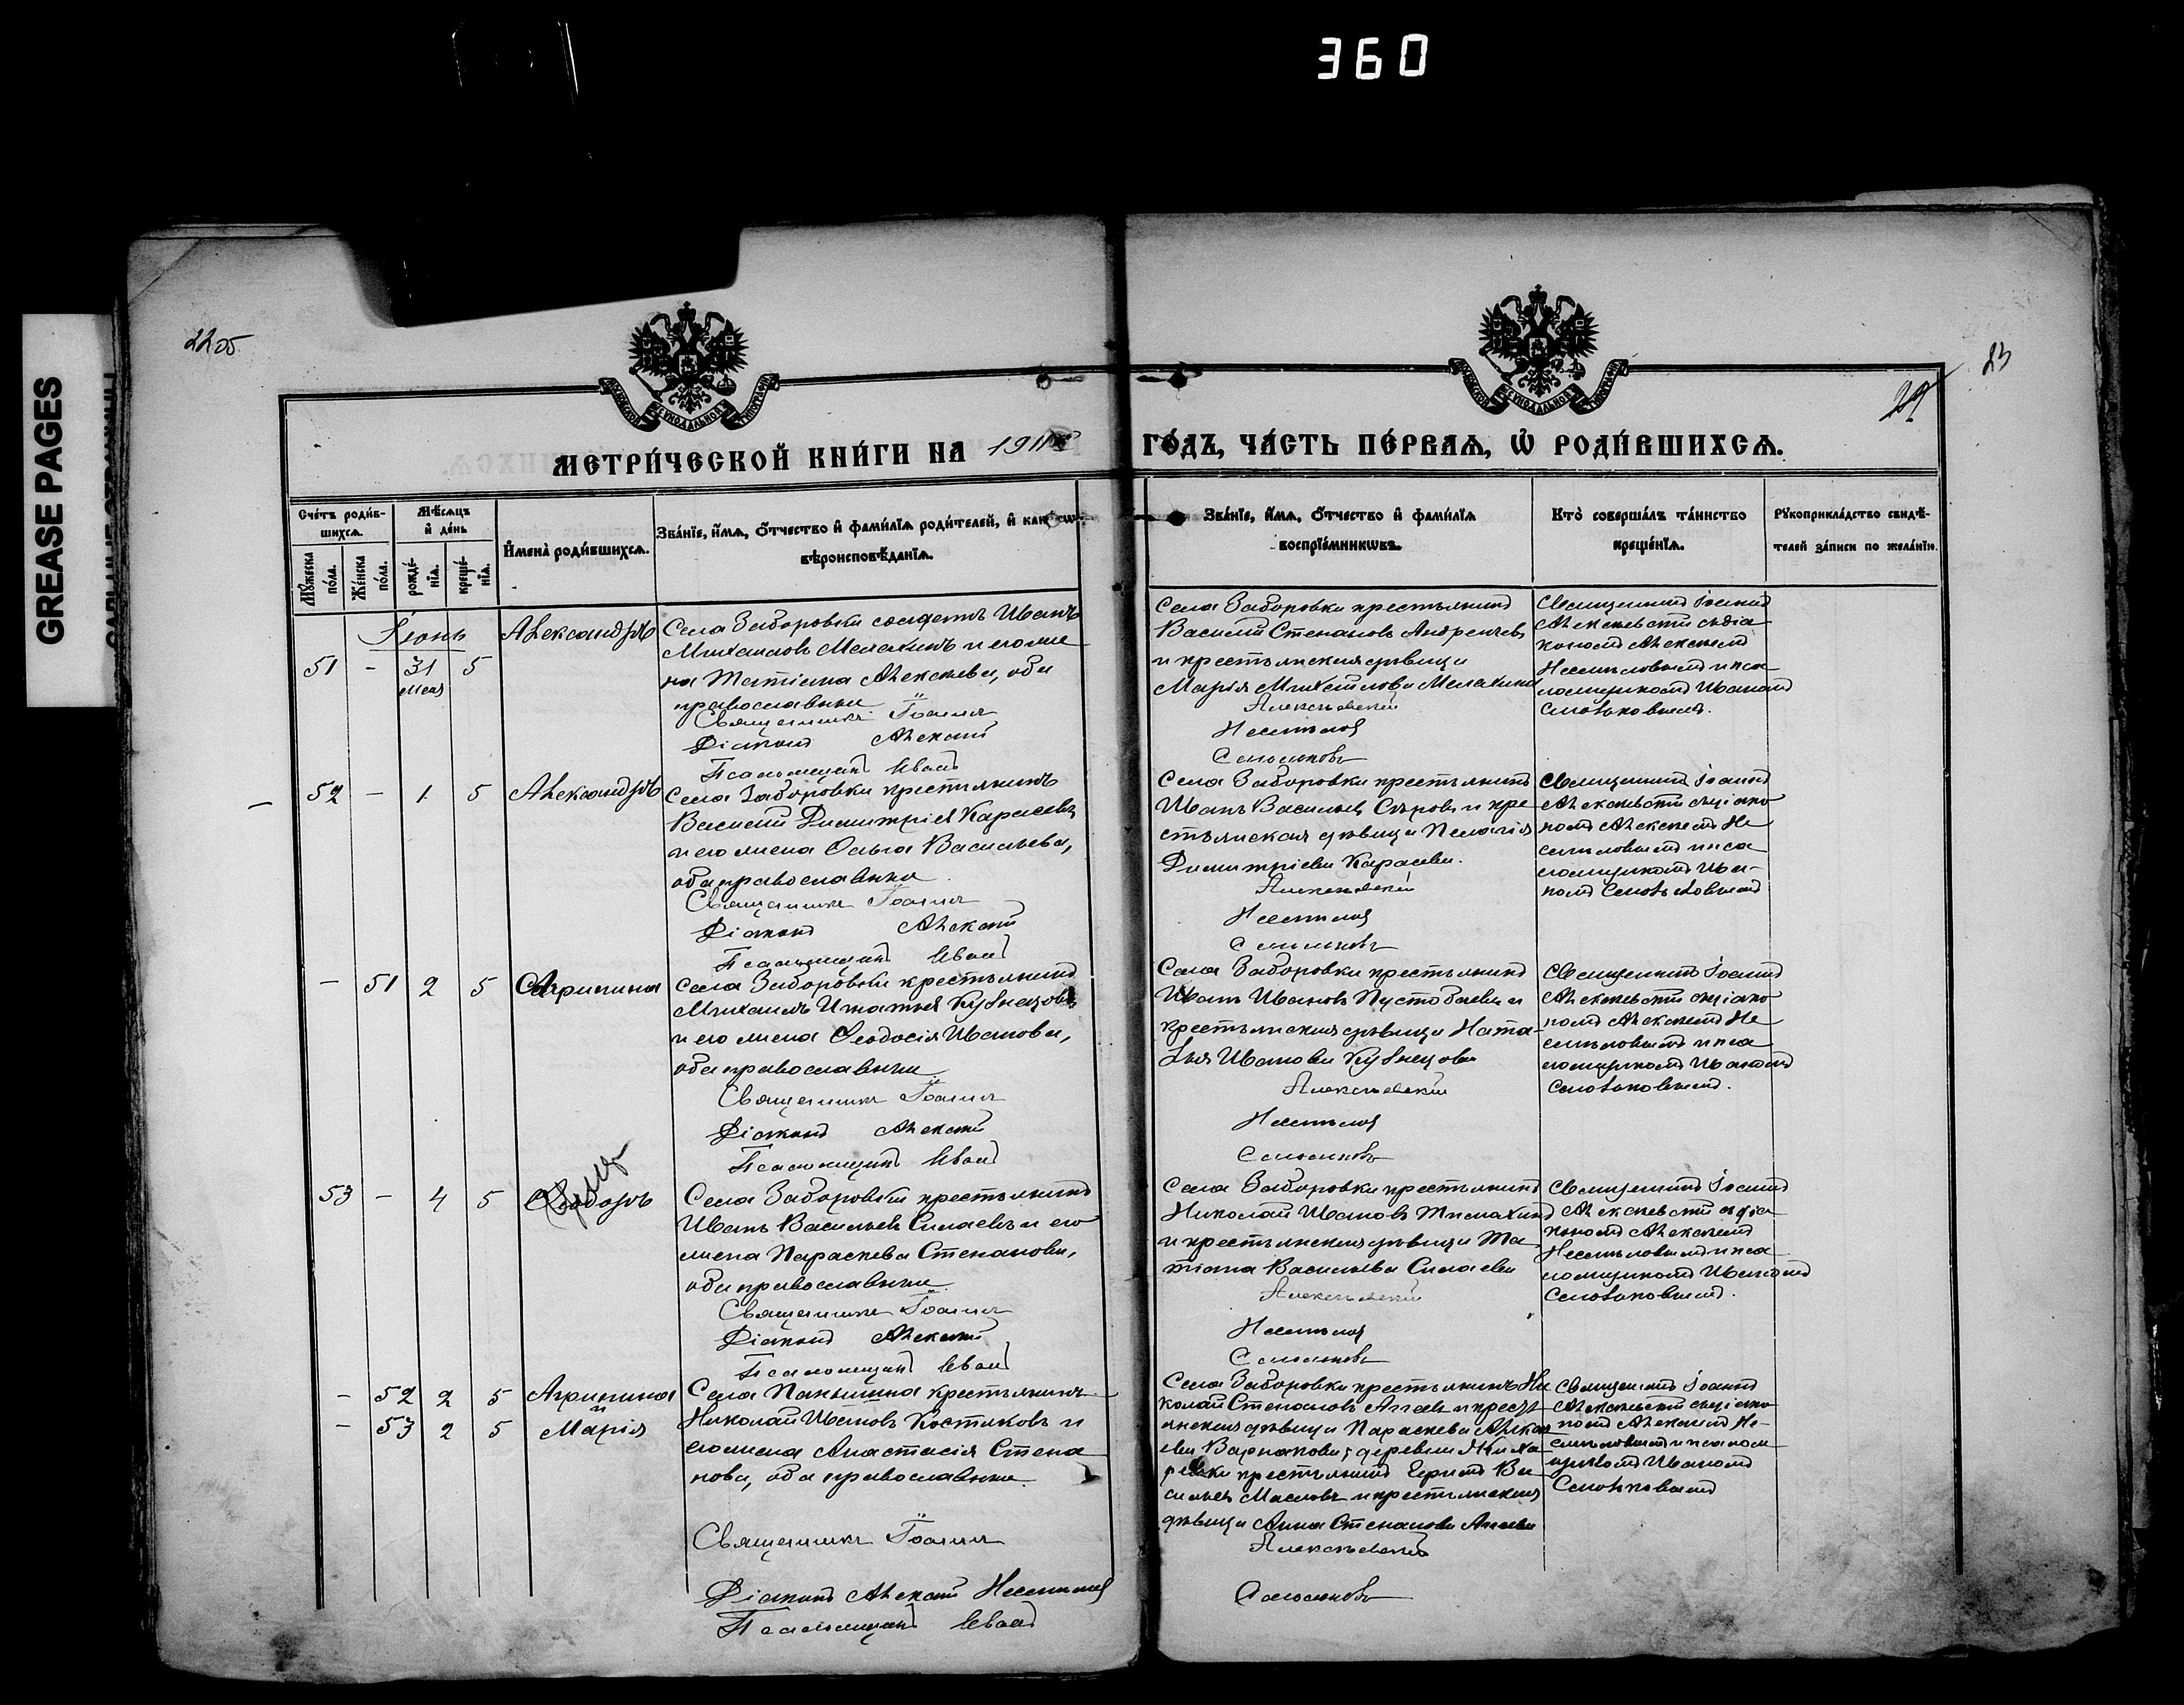 360
GREASE PAGES
23
29
МЕТРИ́ЧЕСКОЙ КНИ́ГИ НА 191
ГО́ДЪ, ЧА́СТЬ ПЕ́РВАѦ, Ѡ҆ РОДИ́ВШИХСѦ.
Сче́тъ роди́в-
шихсѧ.
Мꙋ́жеска
по́ла.
Же́нска
по́ла.
Мѣ́сѧцъ
и҆ де́нь
рожде́-
нїѧ.
креще́-
нїѧ.
И҆мена̀ роди́вшихсѧ.
Зва́нїе, и҆́мѧ, ѻ҆́тчество и҆ фами́лїѧ роди́телей, и҆
вѣроисповѣ́данїѧ.
Зва́нїе, и҆́мѧ, ѻ҆́тчество и҆ фами́лїѧ
воспрїе́мникѡвъ.
Кто̀ соверша́лъ та́инство
креще́нїѧ.
Рꙋкоприкла́дство свидѣ́-
телей за́писи по жела́нїю.
Іюнь
51 - 31 мая 5
Александръ
Села Заборовки солдатъ Иванъ
Михаиловъ Малахинъ и его же
на Татіана Алексѣева, оба
православные
Священникъ Іоаннъ
Діаконъ Алексѣй
Псаломщикъ Иванъ
Села Заборовки крестьянинъ
Василій Степановъ
и крестьянская дѣвица
Марія Михаилова Малахина
Алексѣевскій
Несмѣловъ
Священникъ Іоаннъ
Алексѣевскій съ діа
кономъ Алексѣемъ
Несмѣловымъ и пса
ломщикомъ Иваномъ
52 - 1 5
Александръ
Села Заборовки крестьянинъ
Василій Димитріевъ Карасевъ
и его жена Ольга Васильева,
оба православные
Священникъ Іоаннъ
Діаконъ Алексѣй
Псаломщикъ Иванъ
Села Заборовки крестьянинъ
Иванъ Васильевъ Сѣровъ и кре
стьянская дѣвица Пелагія
Димитріева Карасева.
Алексѣевскій
Несмѣловъ
Священникъ Іоаннъ
Алексѣевскій съ діако
номъ Алексѣемъ Не
смѣловымъ и пса
ломщикомъ Ива-
номъ
- 51 2 5
Агрипина
Села Заборовки крестьянинъ
Михаилъ Игнатьевъ Кузнецовъ
и его жена Ѳеодосія Иванова,
оба православные
Священникъ Іоаннъ
Діаконъ Алексѣй
Псаломщикъ Иванъ
Села Заборовки крестьянинъ
Иванъ Ивановъ и
крестьянская дѣвица Ната-
лія Иванова Кузнецова
Алексѣевскій
Несмѣловъ
Священникъ Іоаннъ
Алексѣевскій съ діако
номъ Алексѣемъ Не
смѣловымъ и пса
ломщикомъ Иваномъ
53 - 4 5
Ѳеодоръ
Села Заборовки крестьянинъ
Иванъ Васильевъ Силаевъ и его
жена Параскева Степанова,
оба православные
Священникъ Іоаннъ
Діаконъ Алексѣй
Псаломщикъ Иванъ
Села Заборовки крестьянинъ
Николай Ивановъ
и крестьянская дѣвица Та
тіана Васильева Силаева
Алексѣевскій
Несмѣловъ
Священникъ Іоаннъ
Алексѣевскій съ діа
кономъ Алексѣемъ
Несмѣловымъ и пса
ломщикомъ Иваномъ
- 52 2 5
Агрипина
и
- 53 2 5
Марія
Села Паньшина крестьянинъ
Николай Ивановъ Костяковъ и
его жена Анастасія Степа
нова, оба православные.
Священникъ Іоаннъ
Діаконъ Алексѣй Несмѣловъ
Псаломщикъ Иванъ
Села Заборовки крестьянинъ Ни
колай Степановъ Агаевъ и крест
янская дѣвица Параскева Алексѣ
ева деревни
крестьянинъ Ва
сильевъ Масловъ и крестьянская
дѣвица Анна Степанова Агаева
Алексѣевскій
Священникъ Іоаннъ
Алексѣевскій съ діако
номъ Алексѣемъ Не-
смѣловымъ и псалом
щикомъ Иваномъ